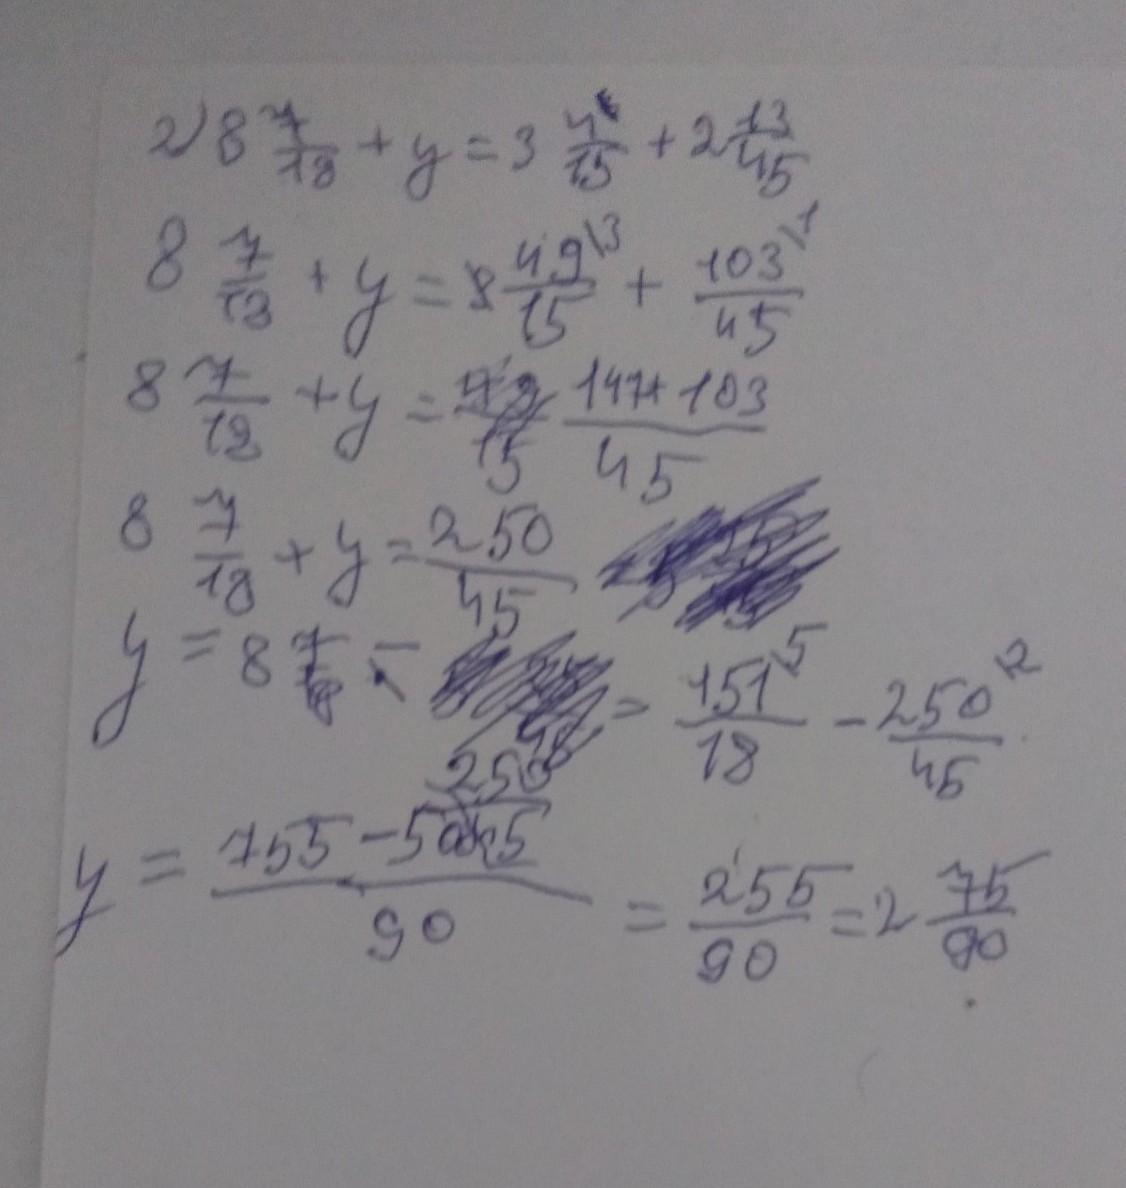 2) 8 7/18 + y = 3 4/15 + 2 13/45
8 7/18 + y = 49\3/15 + 103\1/45
8 7/18 + y = 147+103/45
8 7/18 + y = 250/45
y = 8 7/18 - 250/45 = 151\5/18 - 250\2/45
y = 755-500/90 = 255/90 = 2 75/90